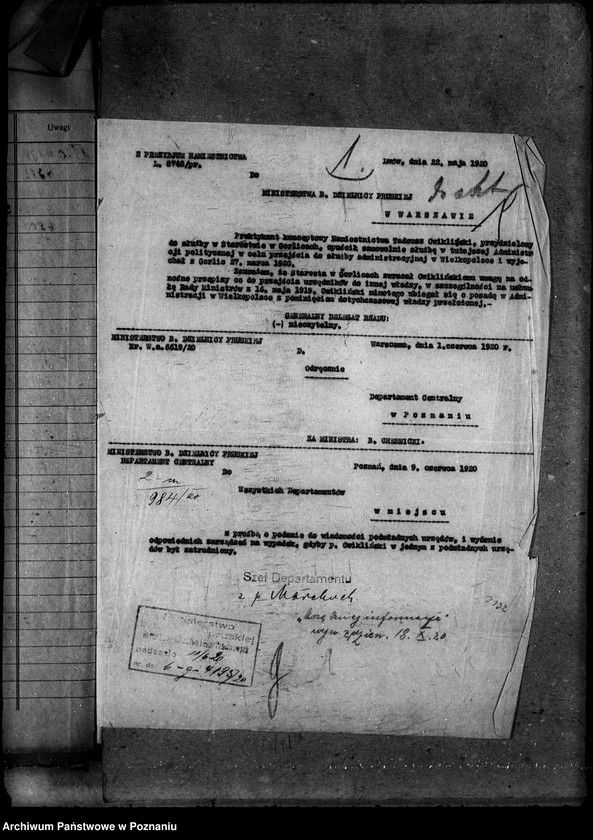 Uwagi
Z PREZYDJUM NAMIESTNICTWA
L. 8746/pr.
1.
Lwów, dnia 22. maja 1920
Do
MINISTERSTWA B. DZIELNICY PRUSKIEJ
do akt
W WARSZAWIE
Praktykant konceptowy Namiestnictwa Tadeusz Cwikliński, przydzielony
do służby w Starostwie w Gorlicach, opuścił samowolnie służbę w tutejszej Administra
cji politycznej w celu przejścia do służby administracyjnej w Wielkopolsce i wyje-
chał z Gorlic 27. marca 1920.
Zaznaczam, że starosta w Gorlicach zwracał Cwiklińskiemu uwagę na od-
nośne przepisy co do przejścia urzędników do innej władzy, w szczególności na uchwa
łę Rady Ministrów z 16. maja 1919. Cwikliński mimotego ubiegał się o posadę w Admi-
nistracji w Wielkopolsce z pominięciem dotychczasowej władzy przełożonej.-
GENERALNY DELEGAT RZĄDU:
(-) nieczytelny.
MINISTERSTWO B. DZIELNICY PRUSKIEJ
Warszawa, dnia 1.czerwca 1920 r.
Nr. W.a.6619/20
D.
Odręcznie
Departament Centralny
w Poznaniu
ZA MINISTRA: B. CHRZNICKI.
MINISTERSTWO B. DZIELNICY PRUSKIEJ
DEPARTAMENT CENTRALNY
Poznań, dnia 9. czerwca 1920
Do
984/20
Wszystkich Departamentów
w miejscu
z prośbą o podanie do wiadomości podwładnych urzędów, i wydanie
odpowiednich zarządzeń na wypadek, gdyby p. Cwikliński w jednym z podwładnych urzę-
dów był zatrudniony.
Szef Departamentu
z p.
18. X. 20.
Ministerstwo
b. Dzielnicy Pruskiej
nadeszło 11/6 20
nr. dz. 6-g-4195/20
Archiwum Państwowe w Poznaniu